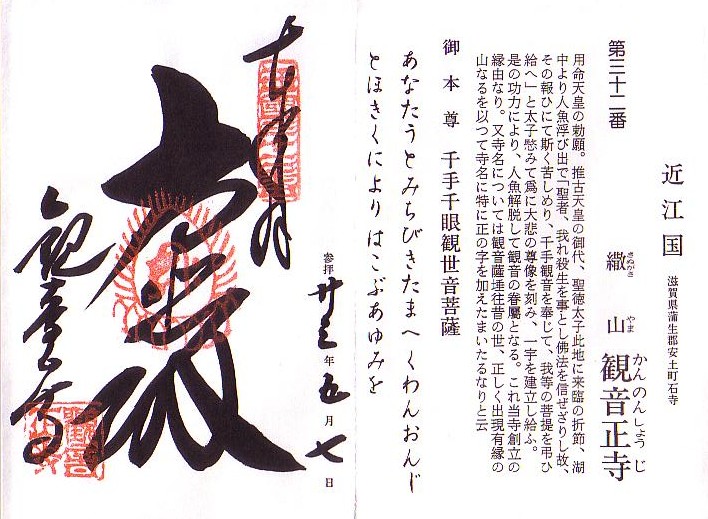 近江国
滋賀県蒲生郡安土町石寺
第三十二番
繖山 観音正寺
きぬがさ やま かんのんしょうじ
用命天皇の勅願。推古天皇の御代、聖徳太子此地に来臨の折節、湖
中より人魚浮び出で「聖者、我れ殺生を事とし佛法を信ぜざりし故、
その報ひにて斯く苦しめり、千手観音を奉じて、我等の菩提を弔ひ
給へ」と太子愍みて爲に大悲の尊像を刻み、一宇を建立し給ふ。
是の功力により、人魚解脱して観音の眷屬となる。これ当寺創立の
縁由なり。又寺名については観音薩埵往昔の世、正しく出現有縁の
山なるを以つて寺名に特に正の字を加えたまいたるなりと云
御本尊 千手千眼観世音菩薩
あなたうとみちびきたまへくわんおんじ
とほきくによりはこぶあゆみを
参拝 廿三年五月七日
奉拝
大悲殿
観音正寺